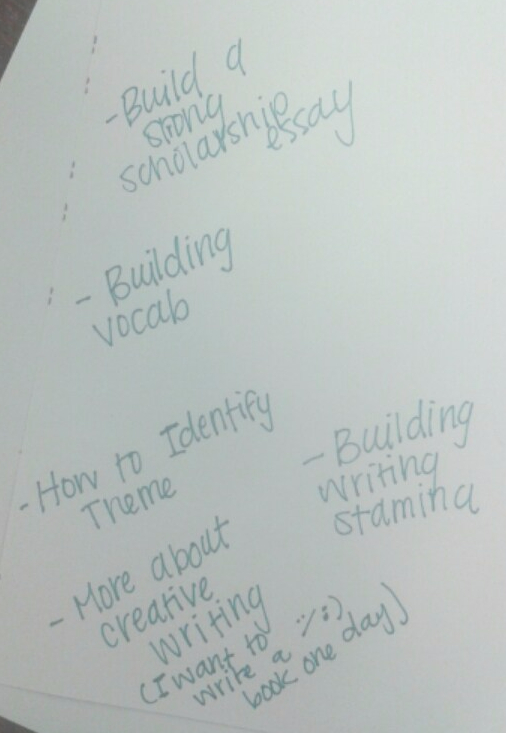 -Build a
strong
scholarship
essay
- Building
vocab
-How to Identify
Theme
- Building
writing
stamina
- More about
creative
writing
(I want to :/:)
write a
book one day)